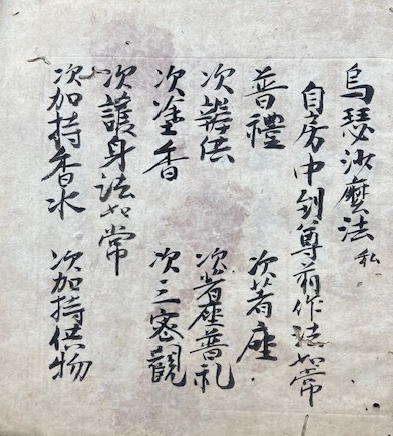 烏瑟沙摩法 私
自房中到尊前作法如常
普禮 次著座
次辦供 次着座普礼
次塗香 次三密觀
次護身法如常
次加持香水 次加持供物